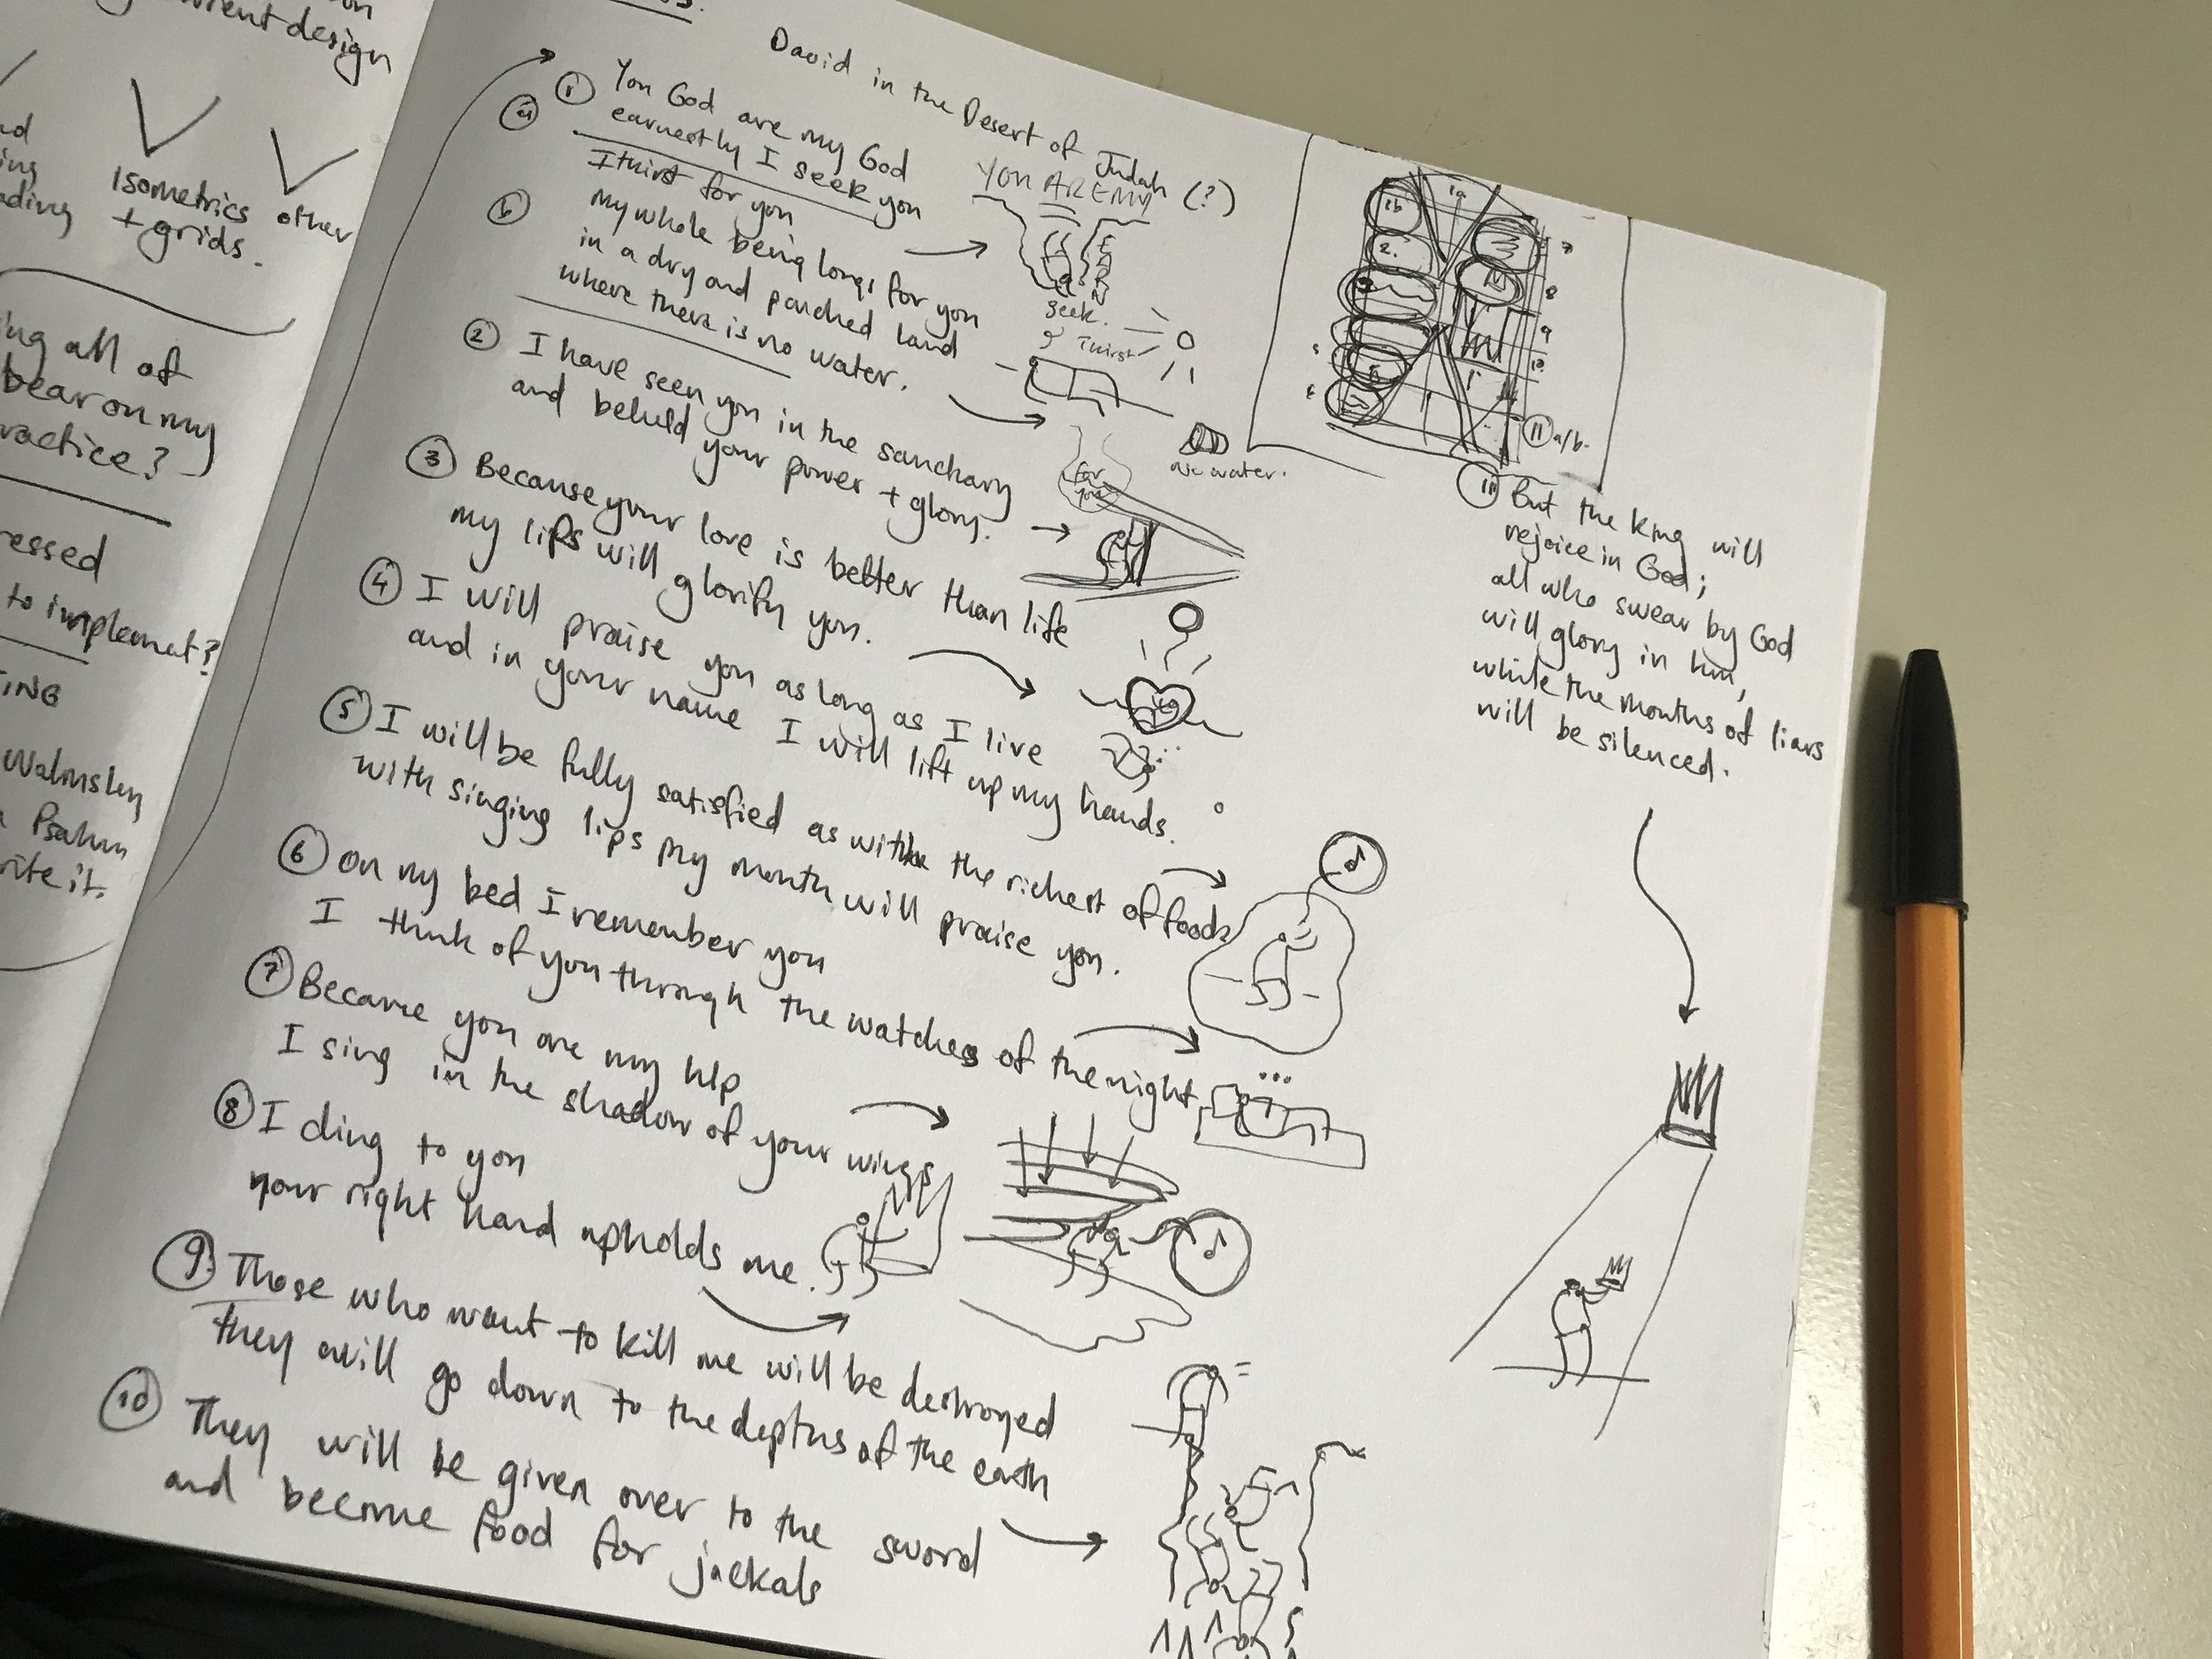 rrent design
Isometrics
+ grids.
other
ing all of
bear on my
ractice?
ressed
to implemat?
TING
Walmsley
Psalm
rite it.
David in the Desert of Judah (?)
① You God are my God
a earnestly I seek you
I thirst for you
b my whole being longs for you
in a dry and parched land
where there is no water.
② I have seen you in the sanctuary
and beheld your power + glory.
③ Because your love is better than life
my lips will glorify you.
④ I will praise you as long as I live
and in your name I will lift up my hands.
⑤ I will be fully satisfied as with the richest of foods
with singing lips my mouth will praise you.
⑥ On my bed I remember you
I think of you through the watches of the night
⑦ Because you are my help
I sing in the shadow of your wings
⑧ I cling to you
your right hand upholds me.
⑨ Those who want to kill me will be destroyed
they will go down to the depths of the earth
⑩ They will be given over to the sword
and become food for jackals
YOU ARE MY
EARN
Seek.
& Thirst
for
you
No water.
1b
1a
2.
7
8
9
10
5
6
11 a/b.
⑪ But the king will
rejoice in God;
all who swear by God
will glory in him,
while the mouths of liars
will be silenced.